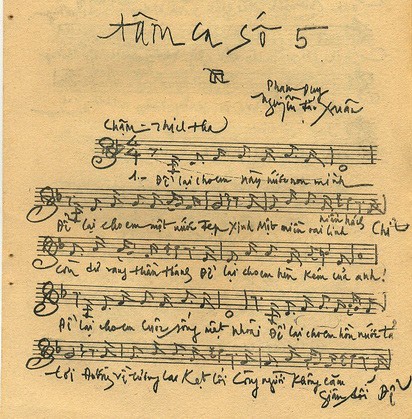 tâm ca số 5
Phạm Duy
Nguyễn Đắc Xuân
Chậm - Thiết tha
1.- Để lại cho em này nước non mình
Để lại cho em một nước đẹp xinh Một miền oai linh hiển hách Chỉ
Còn dư vang thần thánh Để lại cho em hèn kém của anh!
Để lại cho em cuộc sống mệt nhoài Để lại cho em hồn nước tả
tơi Đường về tương lai Kẹt lối Lòng người không cầm giận dỗi Để